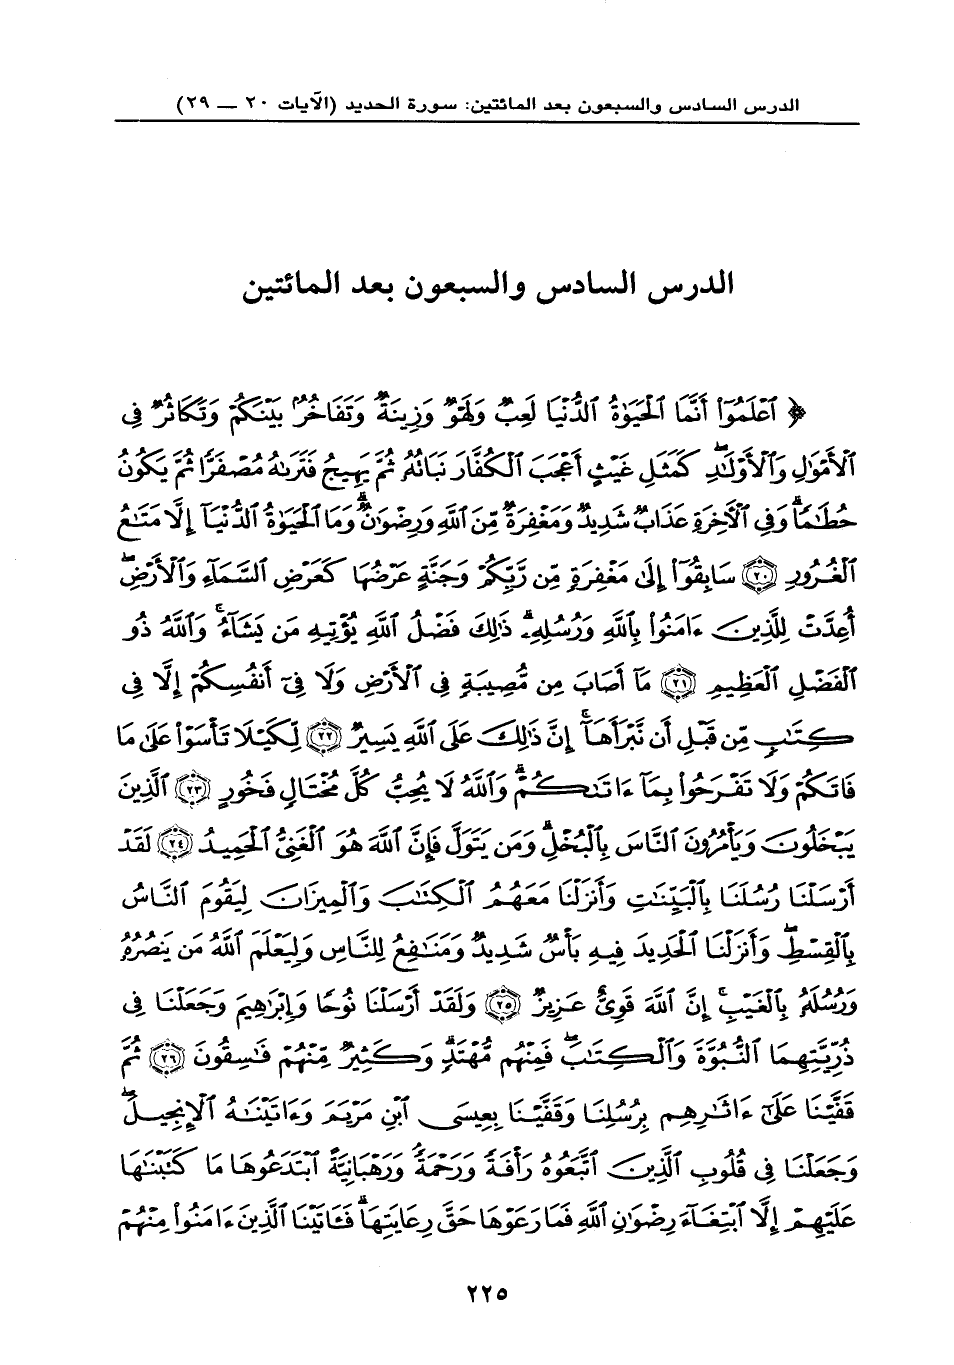 الدرس السادس والسبعون بعد المائتين: سورة الحديد (الآيات ٢٠ ــ ٢٩)
الدرس السادس والسبعون بعد المائتين
﴿ ٱعْلَمُوٓا۟ أَنَّمَا ٱلْحَيَوٰةُ ٱلدُّنْيَا لَعِبٌ وَلَهْوٌ وَزِينَةٌ وَتَفَاخُرٌۢ بَيْنَكُمْ وَتَكَاثُرٌ فِى
ٱلْأَمْوَٰلِ وَٱلْأَوْلَٰدِ ۖ كَمَثَلِ غَيْثٍ أَعْجَبَ ٱلْكُفَّارَ نَبَاتُهُۥ ثُمَّ يَهِيجُ فَتَرَىٰهُ مُصْفَرًّا ثُمَّ يَكُونُ
حُطَٰمًا ۖ وَفِى ٱلْأَخِرَةِ عَذَابٌ شَدِيدٌ وَمَغْفِرَةٌ مِّنَ ٱللَّهِ وَرِضْوَٰنٌ ۚ وَمَا ٱلْحَيَوٰةُ ٱلدُّنْيَآ إِلَّا مَتَٰعُ
ٱلْغُرُورِ ﴿٢٠﴾ سَابِقُوٓا۟ إِلَىٰ مَغْفِرَةٍ مِّن رَّبِّكُمْ وَجَنَّةٍ عَرْضُهَا كَعَرْضِ ٱلسَّمَآءِ وَٱلْأَرْضِ
أُعِدَّتْ لِلَّذِينَ ءَامَنُوا۟ بِٱللَّهِ وَرُسُلِهِۦ ۚ ذَٰلِكَ فَضْلُ ٱللَّهِ يُؤْتِيهِ مَن يَشَآءُ ۚ وَٱللَّهُ ذُو
ٱلْفَضْلِ ٱلْعَظِيمِ ﴿٢١﴾ مَآ أَصَابَ مِن مُّصِيبَةٍ فِى ٱلْأَرْضِ وَلَا فِىٓ أَنفُسِكُمْ إِلَّا فِى
كِتَٰبٍ مِّن قَبْلِ أَن نَّبْرَأَهَآ ۚ إِنَّ ذَٰلِكَ عَلَى ٱللَّهِ يَسِيرٌ ﴿٢٢﴾ لِّكَيْلَا تَأْسَوْا۟ عَلَىٰ مَا
فَاتَكُمْ وَلَا تَفْرَحُوا۟ بِمَآ ءَاتَىٰكُمْ ۗ وَٱللَّهُ لَا يُحِبُّ كُلَّ مُخْتَالٍ فَخُورٍ ﴿٢٣﴾ ٱلَّذِينَ
يَبْخَلُونَ وَيَأْمُرُونَ ٱلنَّاسَ بِٱلْبُخْلِ ۗ وَمَن يَتَوَلَّ فَإِنَّ ٱللَّهَ هُوَ ٱلْغَنِىُّ ٱلْحَمِيدُ ﴿٢٤﴾ لَقَدْ
أَرْسَلْنَا رُسُلَنَا بِٱلْبَيِّنَٰتِ وَأَنزَلْنَا مَعَهُمُ ٱلْكِتَٰبَ وَٱلْمِيزَانَ لِيَقُومَ ٱلنَّاسُ
بِٱلْقِسْطِ ۖ وَأَنزَلْنَا ٱلْحَدِيدَ فِيهِ بَأْسٌ شَدِيدٌ وَمَنَٰفِعُ لِلنَّاسِ وَلِيَعْلَمَ ٱللَّهُ مَن يَنصُرُهُۥ
وَرُسُلَهُۥ بِٱلْغَيْبِ ۚ إِنَّ ٱللَّهَ قَوِىٌّ عَزِيزٌ ﴿٢٥﴾ وَلَقَدْ أَرْسَلْنَا نُوحًا وَإِبْرَٰهِيمَ وَجَعَلْنَا فِى
ذُرِّيَّتِهِمَا ٱلنُّبُوَّةَ وَٱلْكِتَٰبَ ۖ فَمِنْهُم مُّهْتَدٍ ۖ وَكَثِيرٌ مِّنْهُمْ فَٰسِقُونَ ﴿٢٦﴾ ثُمَّ
قَفَّيْنَا عَلَىٰٓ ءَاثَٰرِهِم بِرُسُلِنَا وَقَفَّيْنَا بِعِيسَى ٱبْنِ مَرْيَمَ وَءَاتَيْنَٰهُ ٱلْإِنجِيلَ ۖ
وَجَعَلْنَا فِى قُلُوبِ ٱلَّذِينَ ٱتَّبَعُوهُ رَأْفَةً وَرَحْمَةً وَرَهْبَانِيَّةً ٱبْتَدَعُوهَا مَا كَتَبْنَٰهَا
عَلَيْهِمْ إِلَّا ٱبْتِغَآءَ رِضْوَٰنِ ٱللَّهِ فَمَا رَعَوْهَا حَقَّ رِعَايَتِهَا ۖ فَـَٔاتَيْنَا ٱلَّذِينَ ءَامَنُوا۟ مِنْهُمْ
٢٢٥